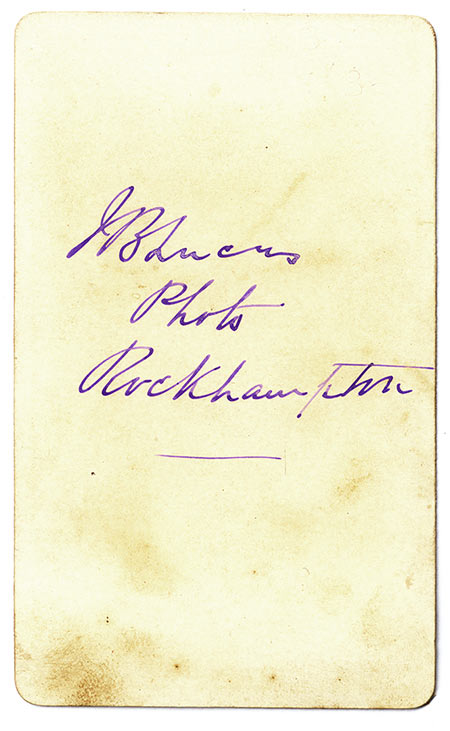 J B Lucas
Photo
Rockhampton